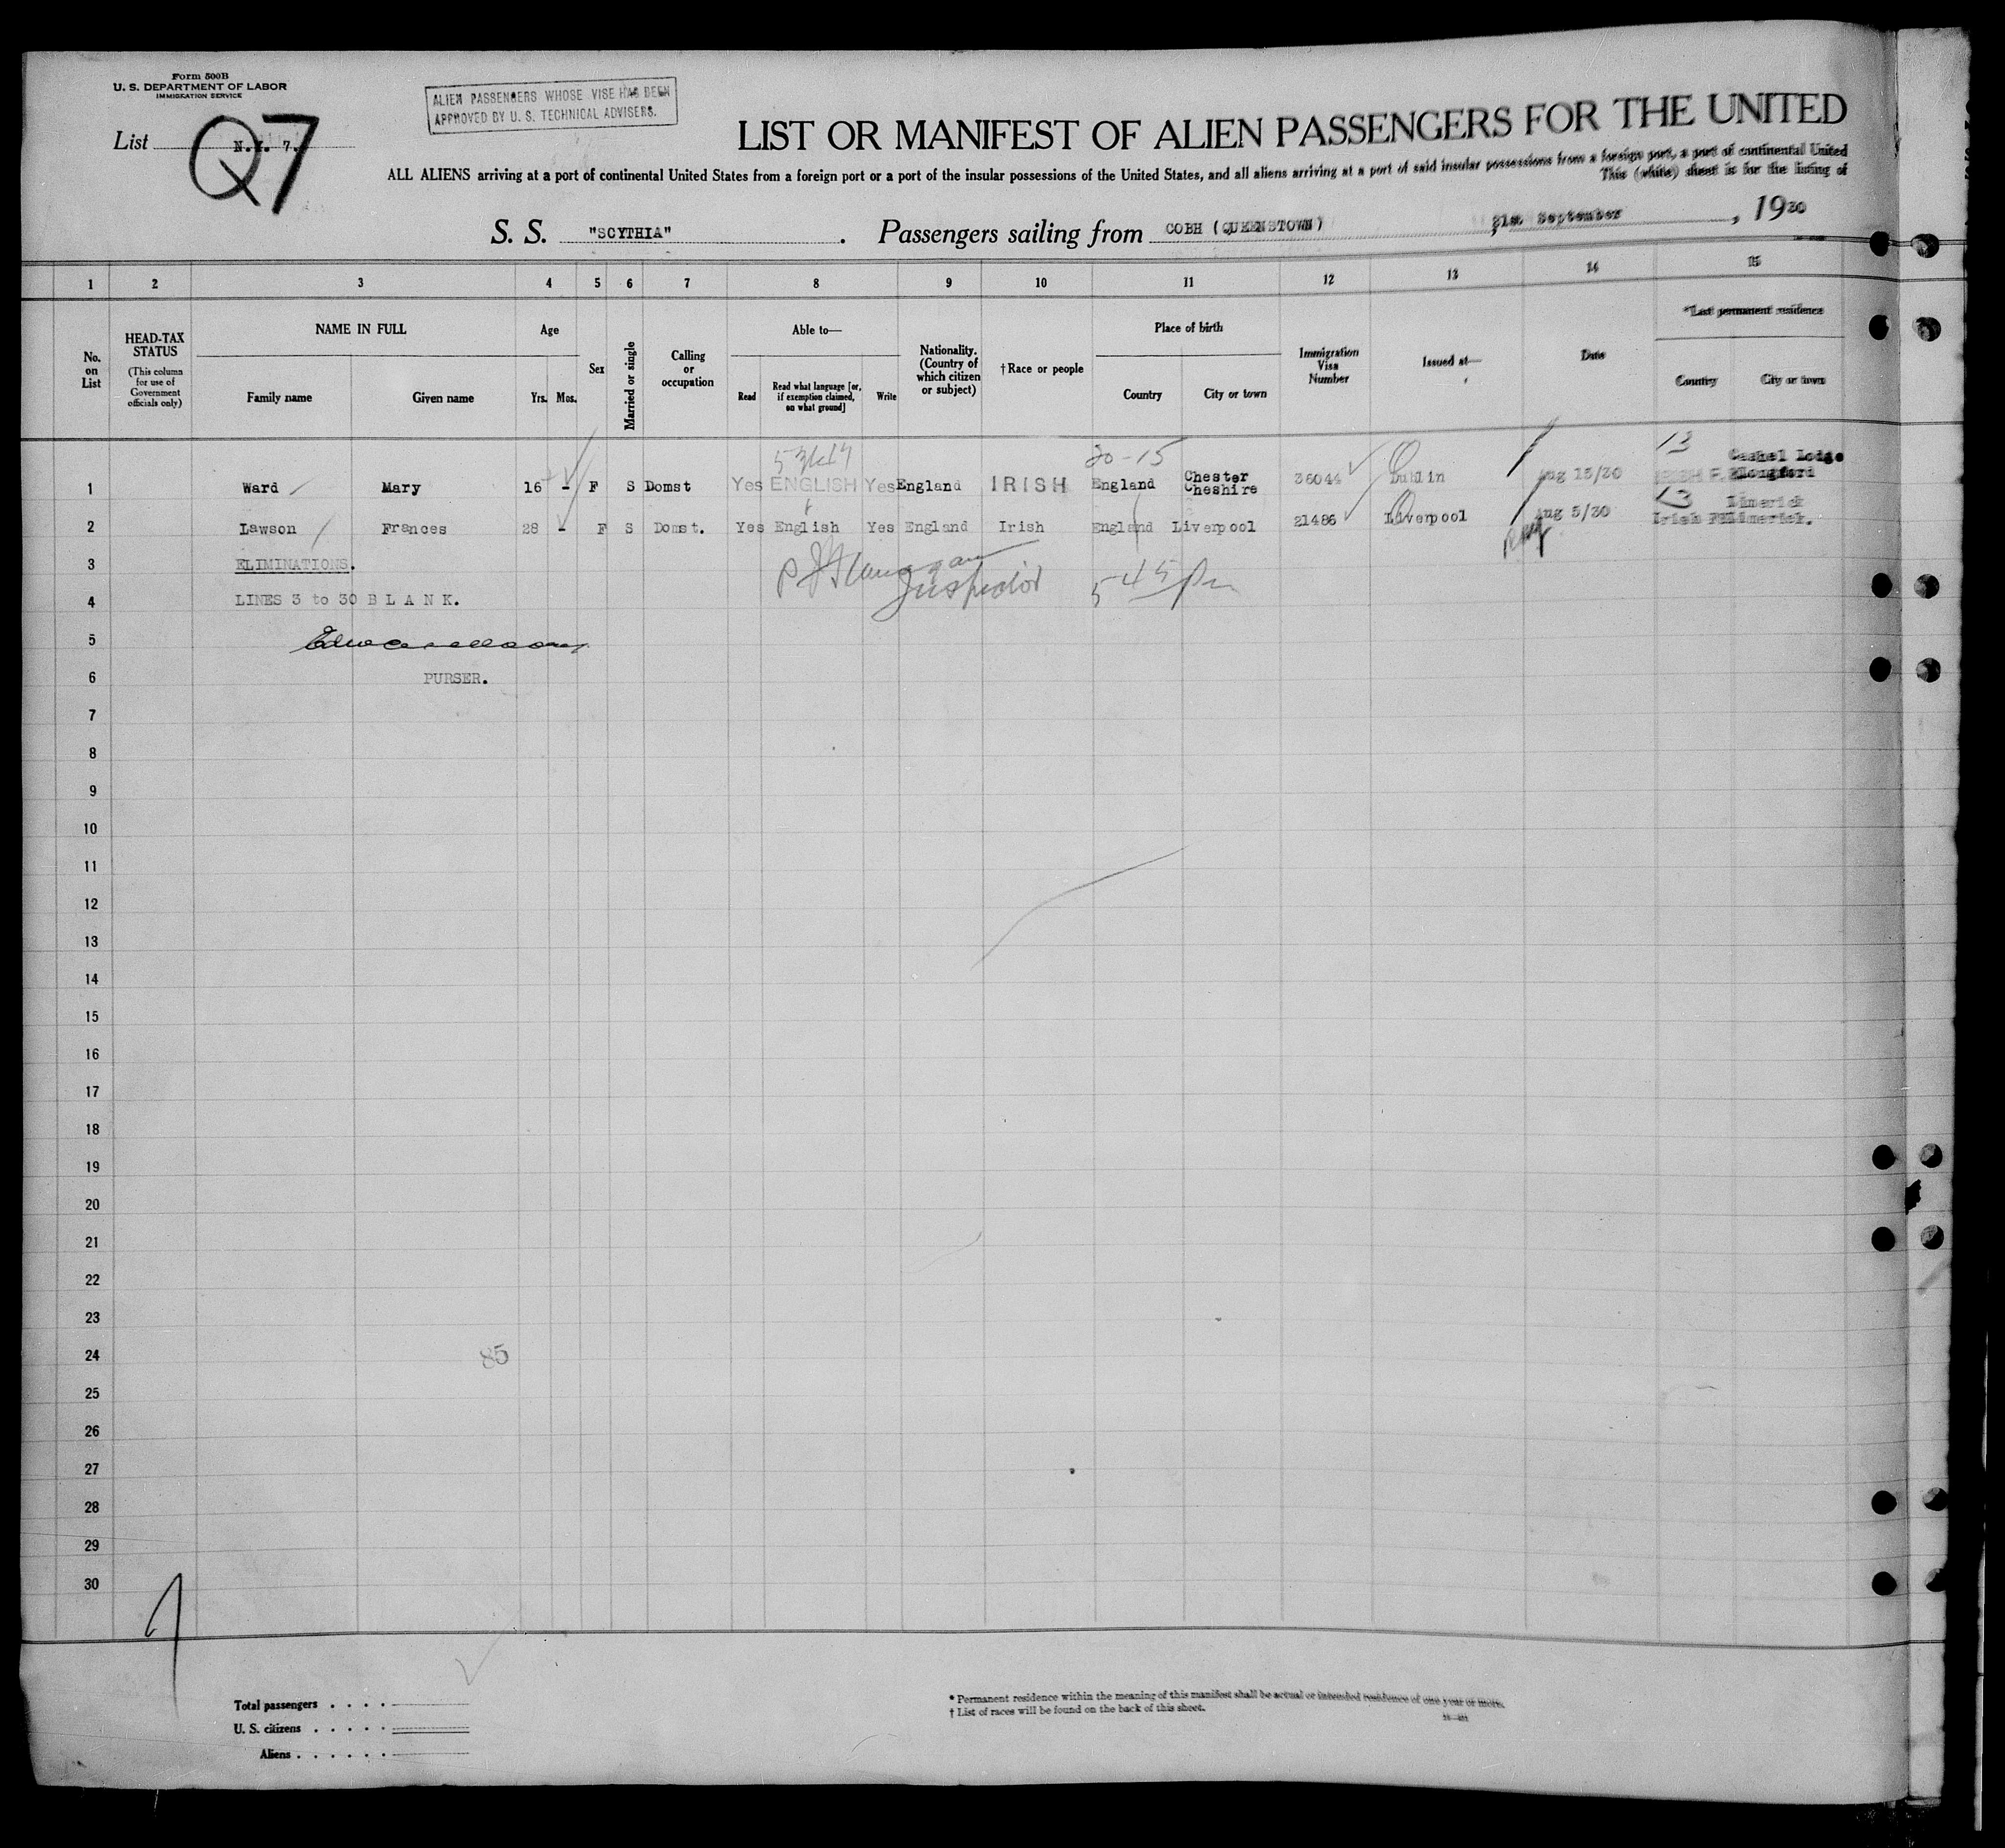 Form 500B
U. S. DEPARTMENT OF LABOR
IMMIGRATION SERVICE
ALIEN PASSENGERS WHOSE VISE HAS BEEN
APPROVED BY U. S. TECHNICAL ADVISERS.
List N.Y. 7.
Q7
LIST OR MANIFEST OF ALIEN PASSENGERS FOR THE UNITED
ALL ALIENS arriving at a port of continental United States from a foreign port or a port of the insular possessions of the United States, and all aliens arriving at a port of said insular possessions from a foreign port, a port of continental United
This (white) sheet is for the listing of
S. S. "SCYTHIA". Passengers sailing from COBH (QUEENSTOWN), 21st September, 1930
1 2 3 4 5 6 7 8 9 10 11 12 13 14 15
No. on List
HEAD-TAX STATUS (This column for use of Government officials only)
NAME IN FULL
Family name Given name
Age
Yrs. Mos.
Sex
Married or single
Calling or occupation
Able to—
Read Read what language [or, if exemption claimed, on what ground] Write
Nationality. (Country of which citizen or subject)
†Race or people
Place of birth
Country City or town
Immigration Visa Number
Issued at—
Date
*Last permanent residence
Country City or town
20-15 13
1 Ward Mary 16 - F S Domst Yes ENGLISH Yes England IRISH England Chester Cheshire 36044 Dublin Aug 15/30 IRISH F. Cashel Lodge Longford
13
2 Lawson Frances 28 - F S Domst. Yes English Yes England Irish England Liverpool 21486 Liverpool Aug 5/30 Irish Limerick Limerick.
3 ELIMINATIONS.
Inspector 5 45 Pm
4 LINES 3 to 30 B L A N K.
5
6 PURSER.
7
8
9
10
11
12
13
14
15
16
17
18
19
20
21
22
23
24
85
25
26
27
28
29
30
Total passengers . . . .
U. S. citizens . . . . .
Aliens . . . . . .
* Permanent residence within the meaning of this manifest shall be actual or intended residence of one year or more.
† List of races will be found on the back of this sheet.